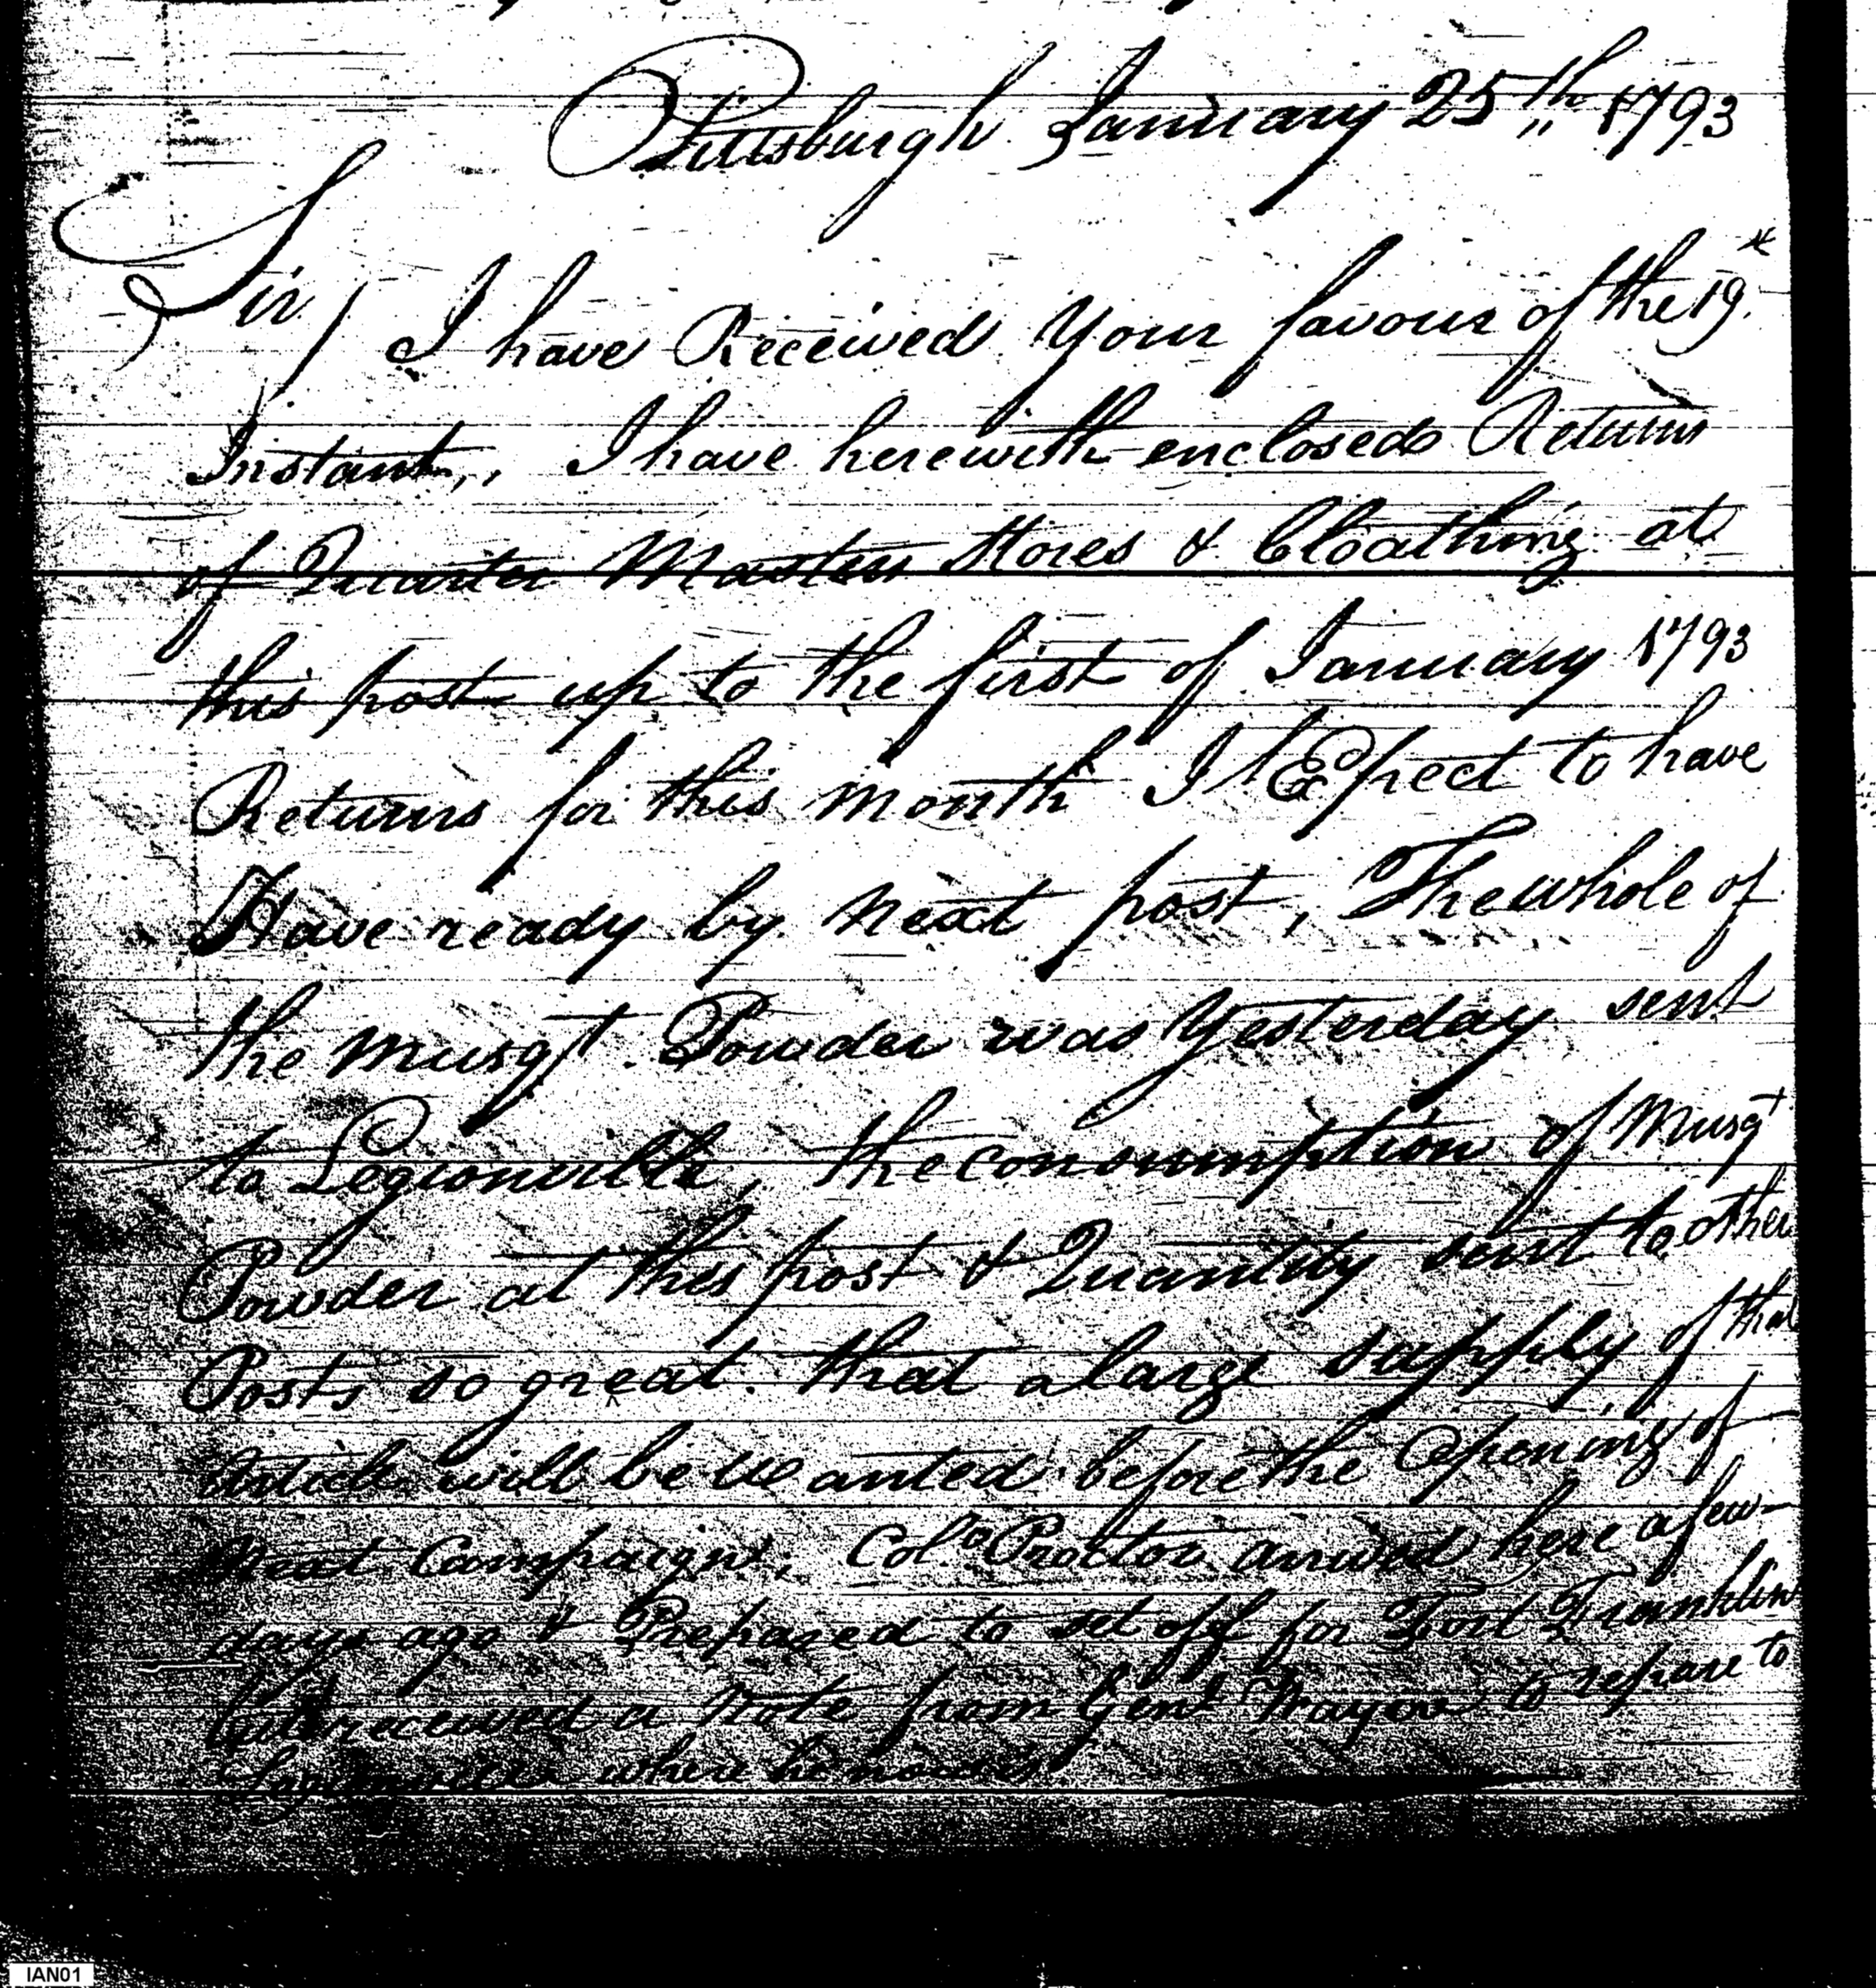 Pittsburgh January 25th 1793
Sir/
I have Received Your favour of the 19th
Instant,, I have herewith enclosed Return
of Quarter Master Stores & Cloathing at
this post up to the first of January 1793
Returns for this month I Expect to have
Have ready by Next post, The whole of
the Musqt Powder was Yesterday sent
to Legionville, the consumption of Musqt
Powder at this post & Quantity sent to other
Posts so great that a large supply of that
Article will be wanted before the Opening of
Next Campaign; Colo Proctor arrived here a few
days ago & Prepared to set off for Fort Franklin
but received a Note from Genl Wayne to repare to
Legionville where he now is.
IAN01